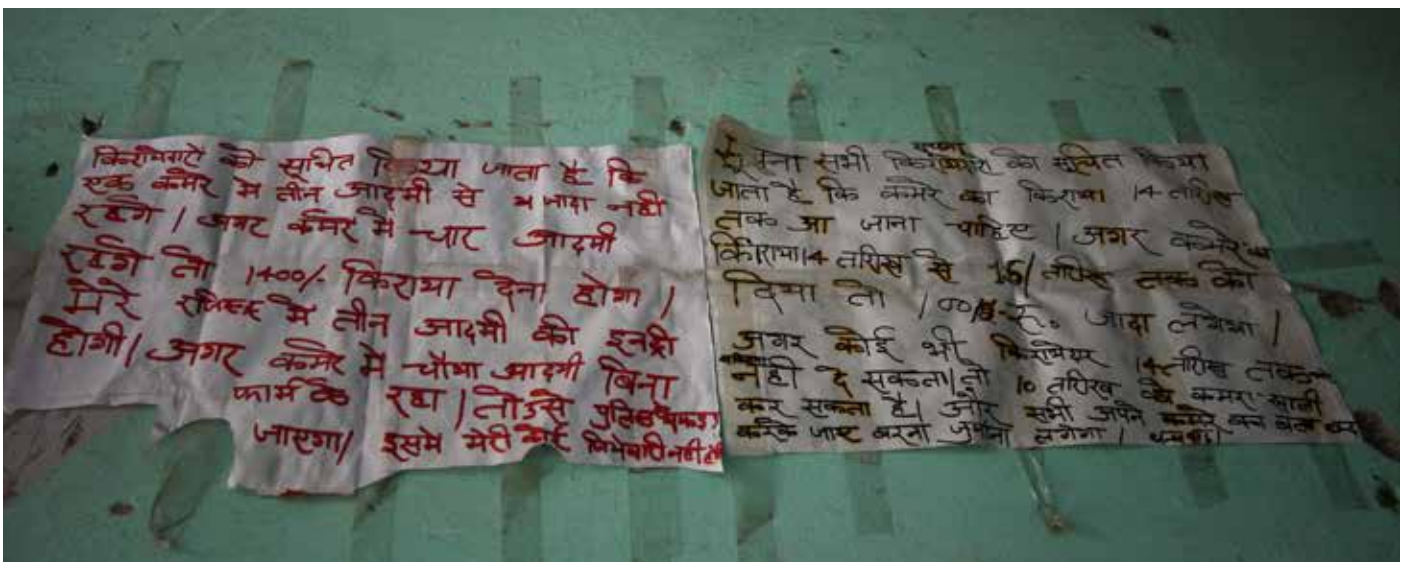 किरायेदारो को सूचित किया जाता है कि
एक कमेर मे तीन आदमी से जादा नही
रहेगे । अगर कमेर मे चार आदमी
रहेगे तो 1400/- किराया देना होगा ।
मेरे रजिस्टर मे तीन आदमी की इनट्री
होगी। अगर कमेर मे चौथा आदमी बिना
फार्म के रहा । तो उसे पुलिस
जाएगा। इसमे मेरी कोई
सूचना सभी को सूचित किया
जाता है कि कमेर का किराया 14 तारिख
तक आ जाना चाहिए । अगर कमेरे का
किराया 14 तारिख से 15/ तारिख तक को
दिया तो 100/- रू. जादा लगेगा ।
अगर कोई भी किरायेदार 14 तारिख तक
नही दे सकता। तो 10 तारिख को कमरा खाली
कर सकता है। और सभी अपने कमेरे का
करके जाए वरना जुर्माना लगेगा ।